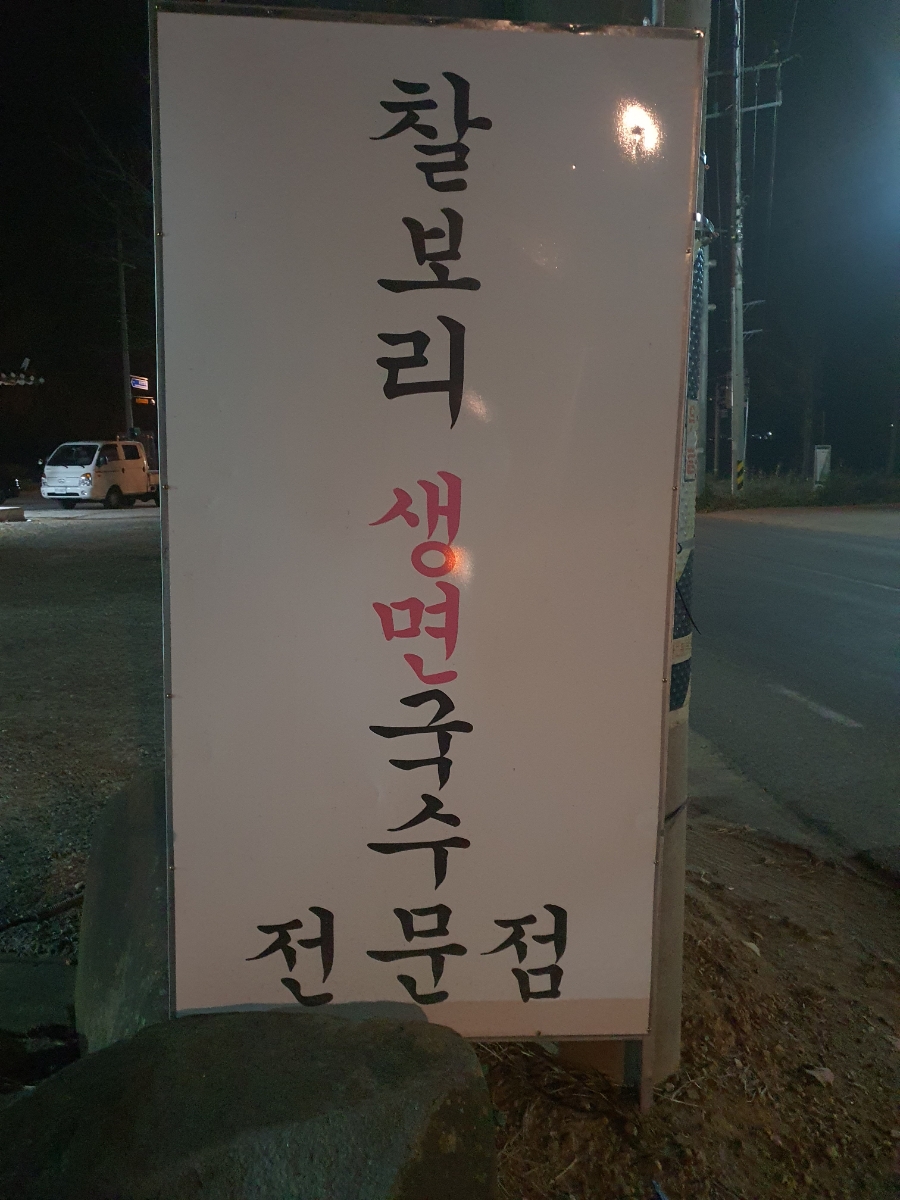 찰보리
생면국수
전문점